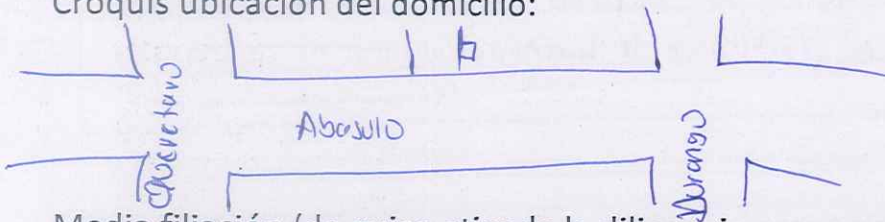 Croquis ubicación del domicilio:
Queretaro
Abasulo
Durango
Media filiación